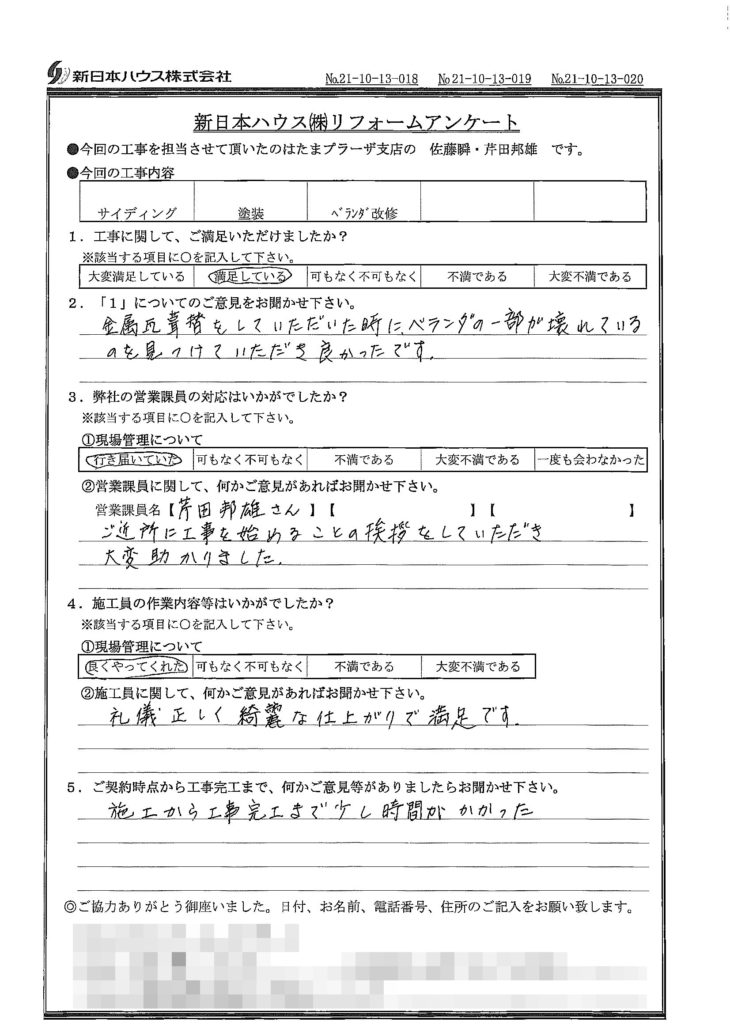 新日本ハウス株式会社 №21-10-13-018 №21-10-13-019 №21-10-13-020
新日本ハウス㈱リフォームアンケート
●今回の工事を担当させて頂いたのはたまプラーザ支店の 佐藤瞬・芹田邦雄 です。
●今回の工事内容
サイディング 塗装 ﾍﾞﾗﾝﾀﾞ改修
1．工事に関して、ご満足いただけましたか？
※該当する項目に○を記入して下さい。
大変満足している 満足している 可もなく不可もなく 不満である 大変不満である
2．「1」についてのご意見をお聞かせ下さい。
金属瓦葺替をしていただいた時に、ベランダの一部が壊れている
のを見つけていただき良かったです.
3．弊社の営業課員の対応はいかがでしたか？
※該当する項目に○を記入して下さい。
①現場管理について
行き届いていた 可もなく不可もなく 不満である 大変不満である 一度も会わなかった
②営業課員に関して、何かご意見があればお聞かせ下さい。
営業課員名【芹田邦雄さん 】【 】【 】
ご近所に工事を始めることの挨拶をしていただき
大変助かりました.
4．施工員の作業内容等はいかがでしたか？
※該当する項目に○を記入して下さい。
①現場管理について
良くやってくれた 可もなく不可もなく 不満である 大変不満である
②施工員に関して、何かご意見があればお聞かせ下さい。
礼儀正しく綺麗な仕上がりで満足です.
5．ご契約時点から工事完工まで、何かご意見等がありましたらお聞かせ下さい。
施工から工事完工まで少し時間がかかった
◎ご協力ありがとう御座いました。日付、お名前、電話番号、住所のご記入をお願い致します。